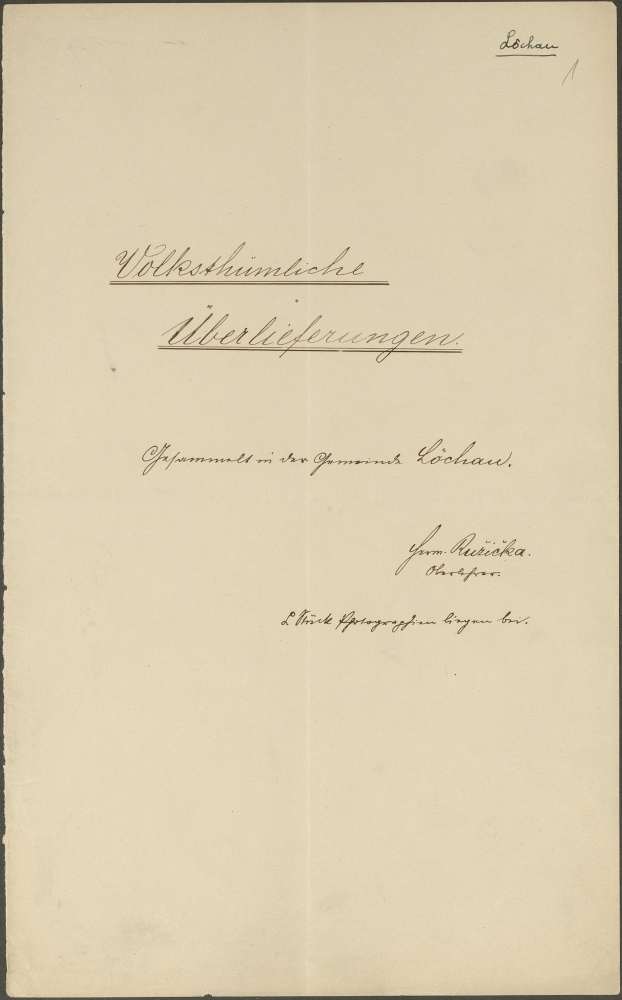 Löchau
1
Volksthümliche
Überlieferungen.
Gesammelt in der Gemeinde Löchau.
Herm. Ružička.
Oberlehrer.
Stück Photographien liegen bei.